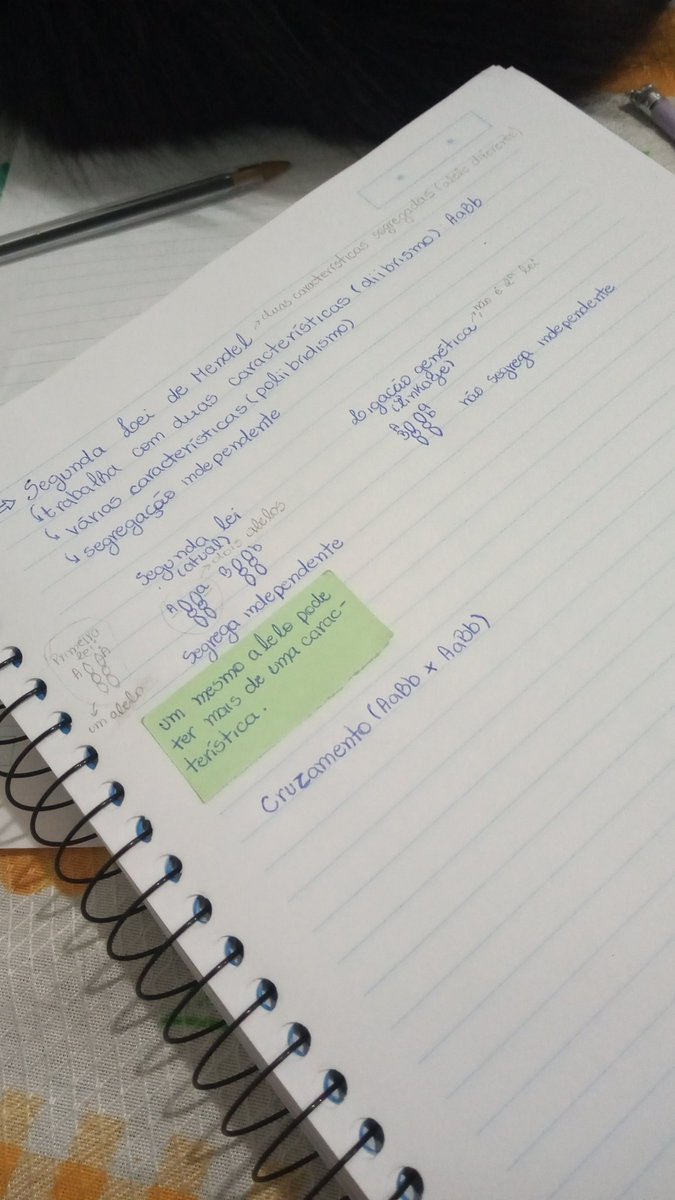 → Segunda Lei de Mendel → duas características segregadas (alelo diferente)
↳ trabalha com duas características (diibrismo) AaBb
↳ várias características (poliibridismo)
↳ segregação independente
Segunda lei
(atual)
→ dois alelos
A a B b
Segrega independente
Ligação genética → não é 2ª lei
(linkage)
A a
B b
não segrega independente
Primeira
lei
A A
↓
um alelo
um mesmo alelo pode
ter mais de uma carac-
terística.
Cruzamento (AaBb x AaBb)